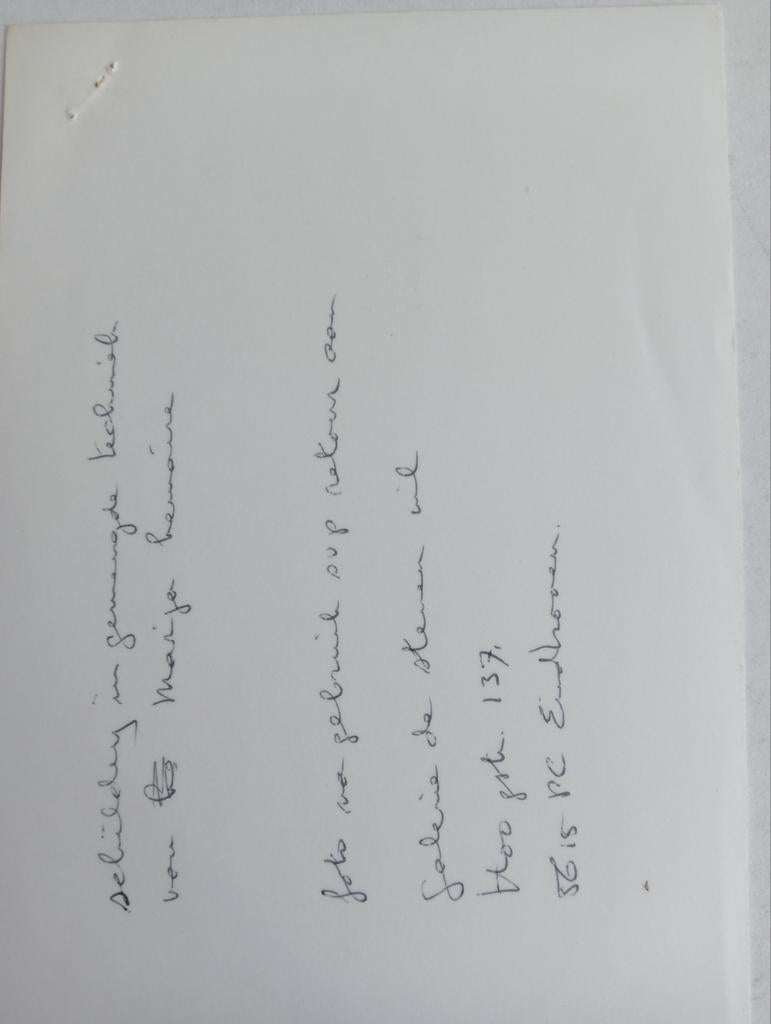 schilderij in gemengde techniek
van Marija
foto na gebruik svp retour aan
Galerie de steen uil
Hoogstr. 137,
5615 PC Eindhoven.